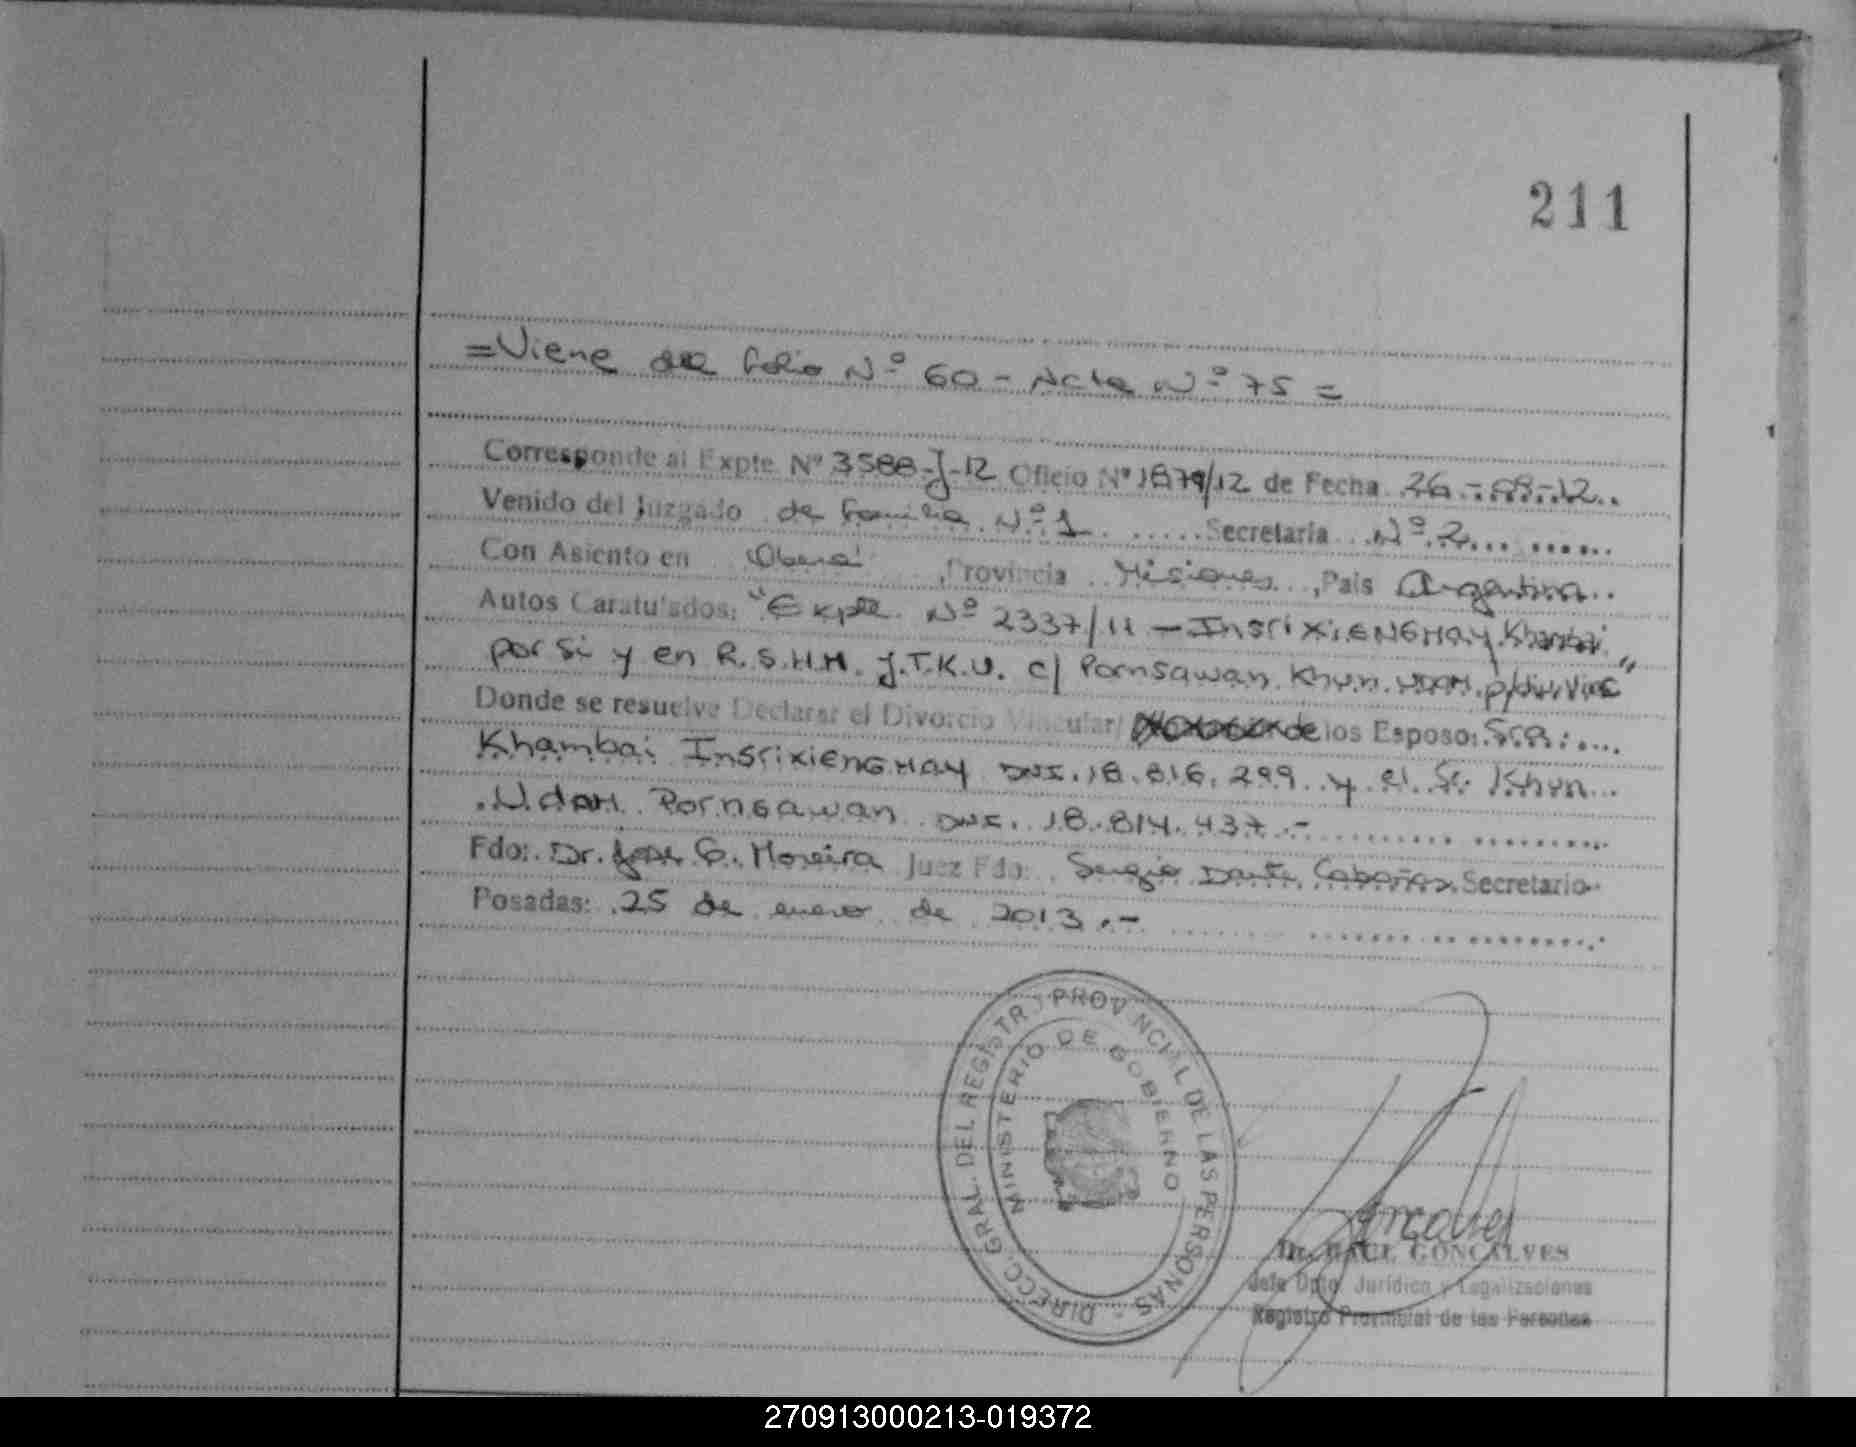 211
=Viene del folio Nº 60 - Acta Nº 75 =
Corresponde al Expte. Nº 3588-J-12 Oficio Nº 1879/12 de Fecha 26-09-12..
Venido del Juzgado de familia Nº 1 ..... Secretaria ..Nº 2... ......
Con Asiento en Oberá ,Provincia Misiones ,Pais Argentina..
Autos Caratulados: "Expte Nº 2337/11 - InsrixiENGHAy Khambai
por Si y en R.S.H.M. J.T.K.U. c/ Pornsawan Khun UDAM p/div. Vinc"
Donde se resuelve Declarar el Divorcio Vincular/ de los Esposo: Sra:....
Khambai InsrixiENGHAy DNI. 18.816.299 y el Sr Khun...
.UdaM Pornsawan DNI. 18.814.437.-
Fdo: Dr. Jose G. Moreira Juez Fdo: Sergio Dante Cabañas Secretario
Posadas: 25 de enero de 2013.-
DIRECC. GRAL. DEL REGISTRO PROVINCIAL DE LAS PERSONAS -
MINISTERIO DE GOBIERNO
Dr. RAUL GONCALVES
Jefe Dpto. Jurídico y Legalizaciones
Registro Provincial de las Personas
270913000213-019372